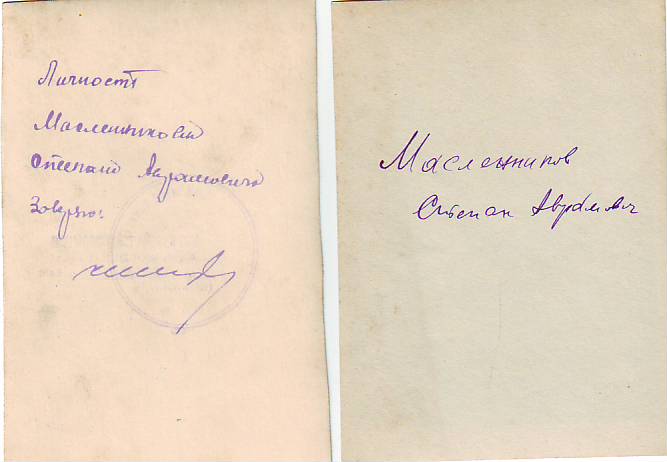 Личность
Масленникова
Степана Аврамовича
Заверяю:
Масленников
Степан Аврамович